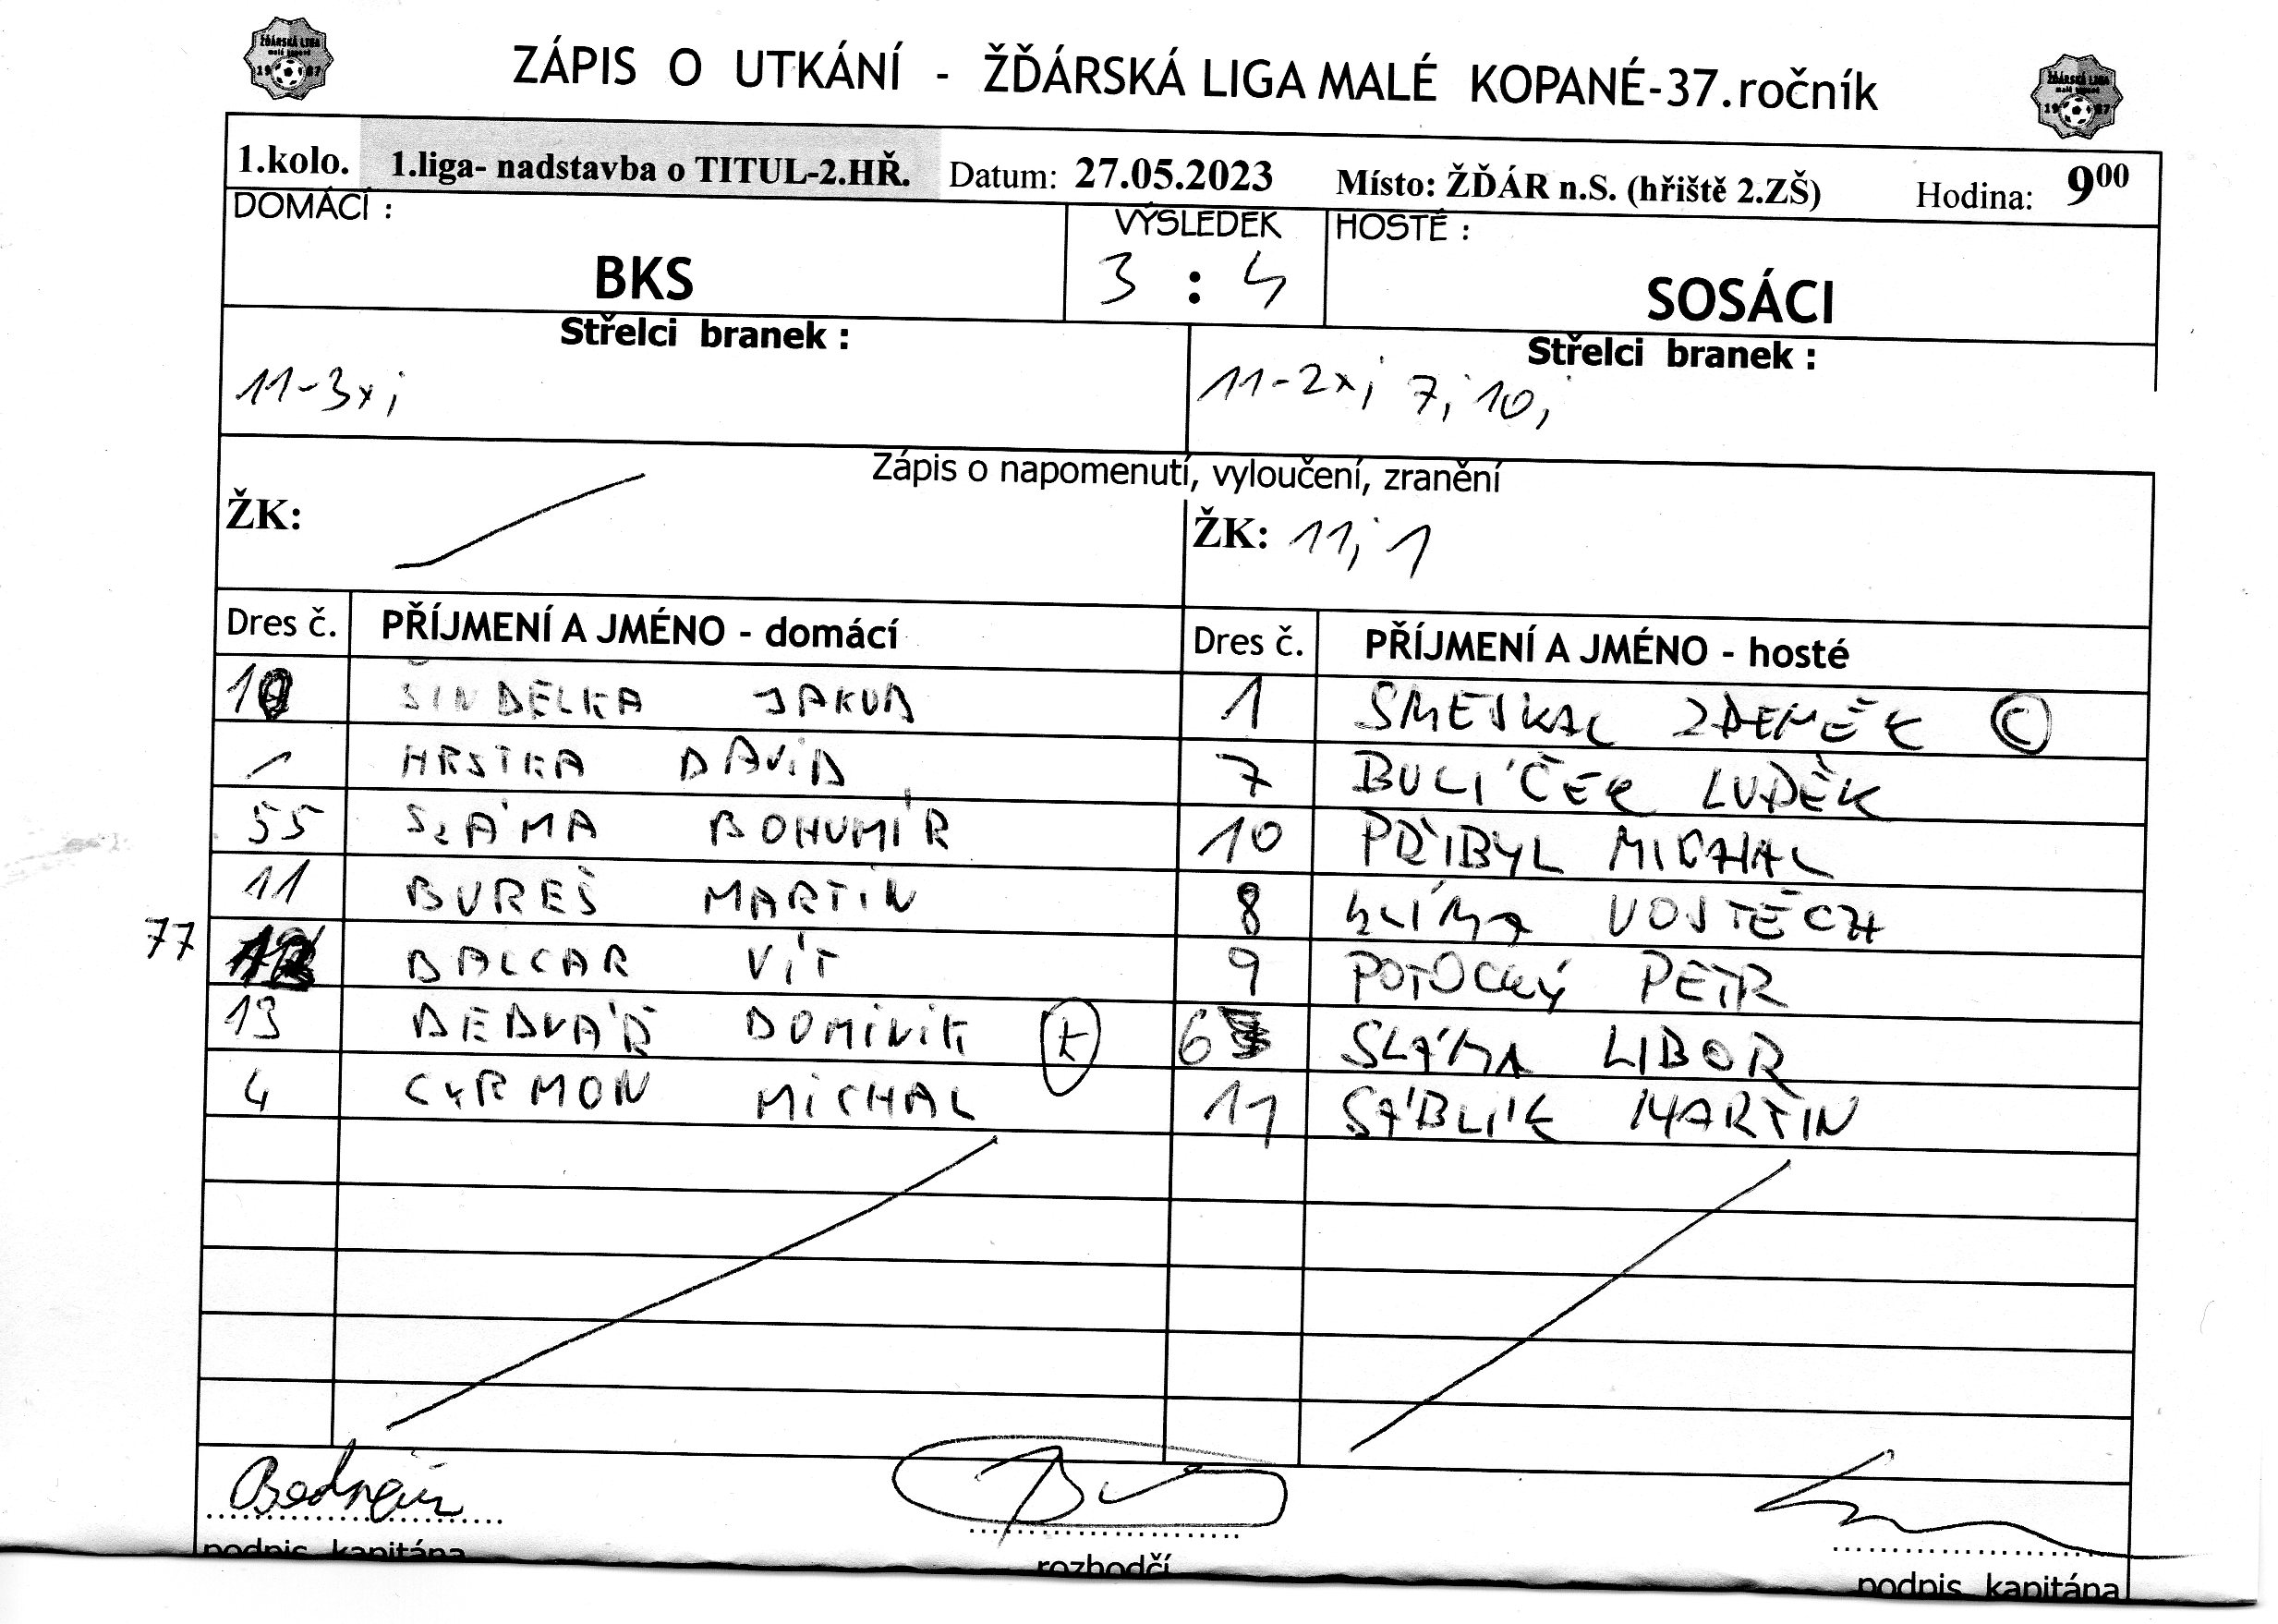 ŽĎÁRSKÁ LIGA
malé kopané
1987
ZÁPIS O UTKÁNÍ - ŽĎÁRSKÁ LIGA MALÉ KOPANÉ-37.ročník
ŽĎÁRSKÁ LIGA
malé kopané
1987
1.kolo. 1.liga- nadstavba o TITUL-2.HŘ. Datum: 27.05.2023 Místo: ŽĎÁR n.S. (hřiště 2.ZŠ) Hodina: 9⁰⁰
DOMÁCÍ : VÝSLEDEK HOSTÉ :
BKS 3 : 4 SOSÁCI
Střelci branek : Střelci branek :
11-3x; 11-2x; 7; 10;
Zápis o napomenutí, vyloučení, zranění
ŽK: ŽK: 11; 1
Dres č. PŘÍJMENÍ A JMÉNO - domácí Dres č. PŘÍJMENÍ A JMÉNO - hosté
10 ŠINDELKA JAKUB 1 SMEJKAL ZDENĚK C
1 HRSTKA DAVID 7 BULÍČEK LUDĚK
55 SLÁMA BOHUMÍR 10 PŘIBYL MICHAL
11 BUREŠ MARTIN 8 KLÍMA VOJTĚCH
77 BALCAR VÍT 9 POTOCKÝ PETR
13 BEDNÁŘ DOMINIK K 6 SLÁMA LIBOR
4 CYRMON MICHAL 11 SÁBLÍK MARTIN
Bednář
podpis kapitána rozhodčí podpis kapitána